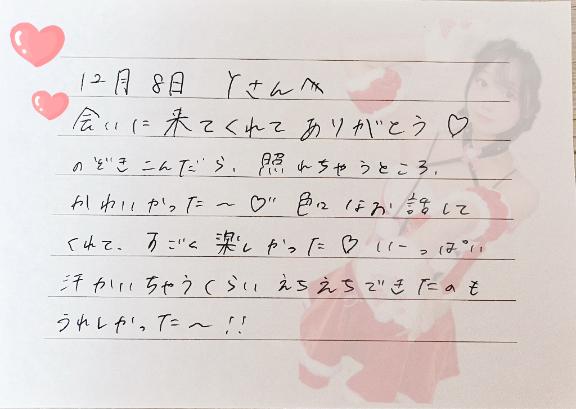 12月 8日 Yさんへ
会いに来てくれてありがとう♡
のぞきこんだら、照れちゃうところ、
かわいかった〜♡ 色んなお話して
くれて、すごく楽しかった♡ いーっぱい
汗かいちゃうくらい えちえちできたのも
うれしかった〜!!